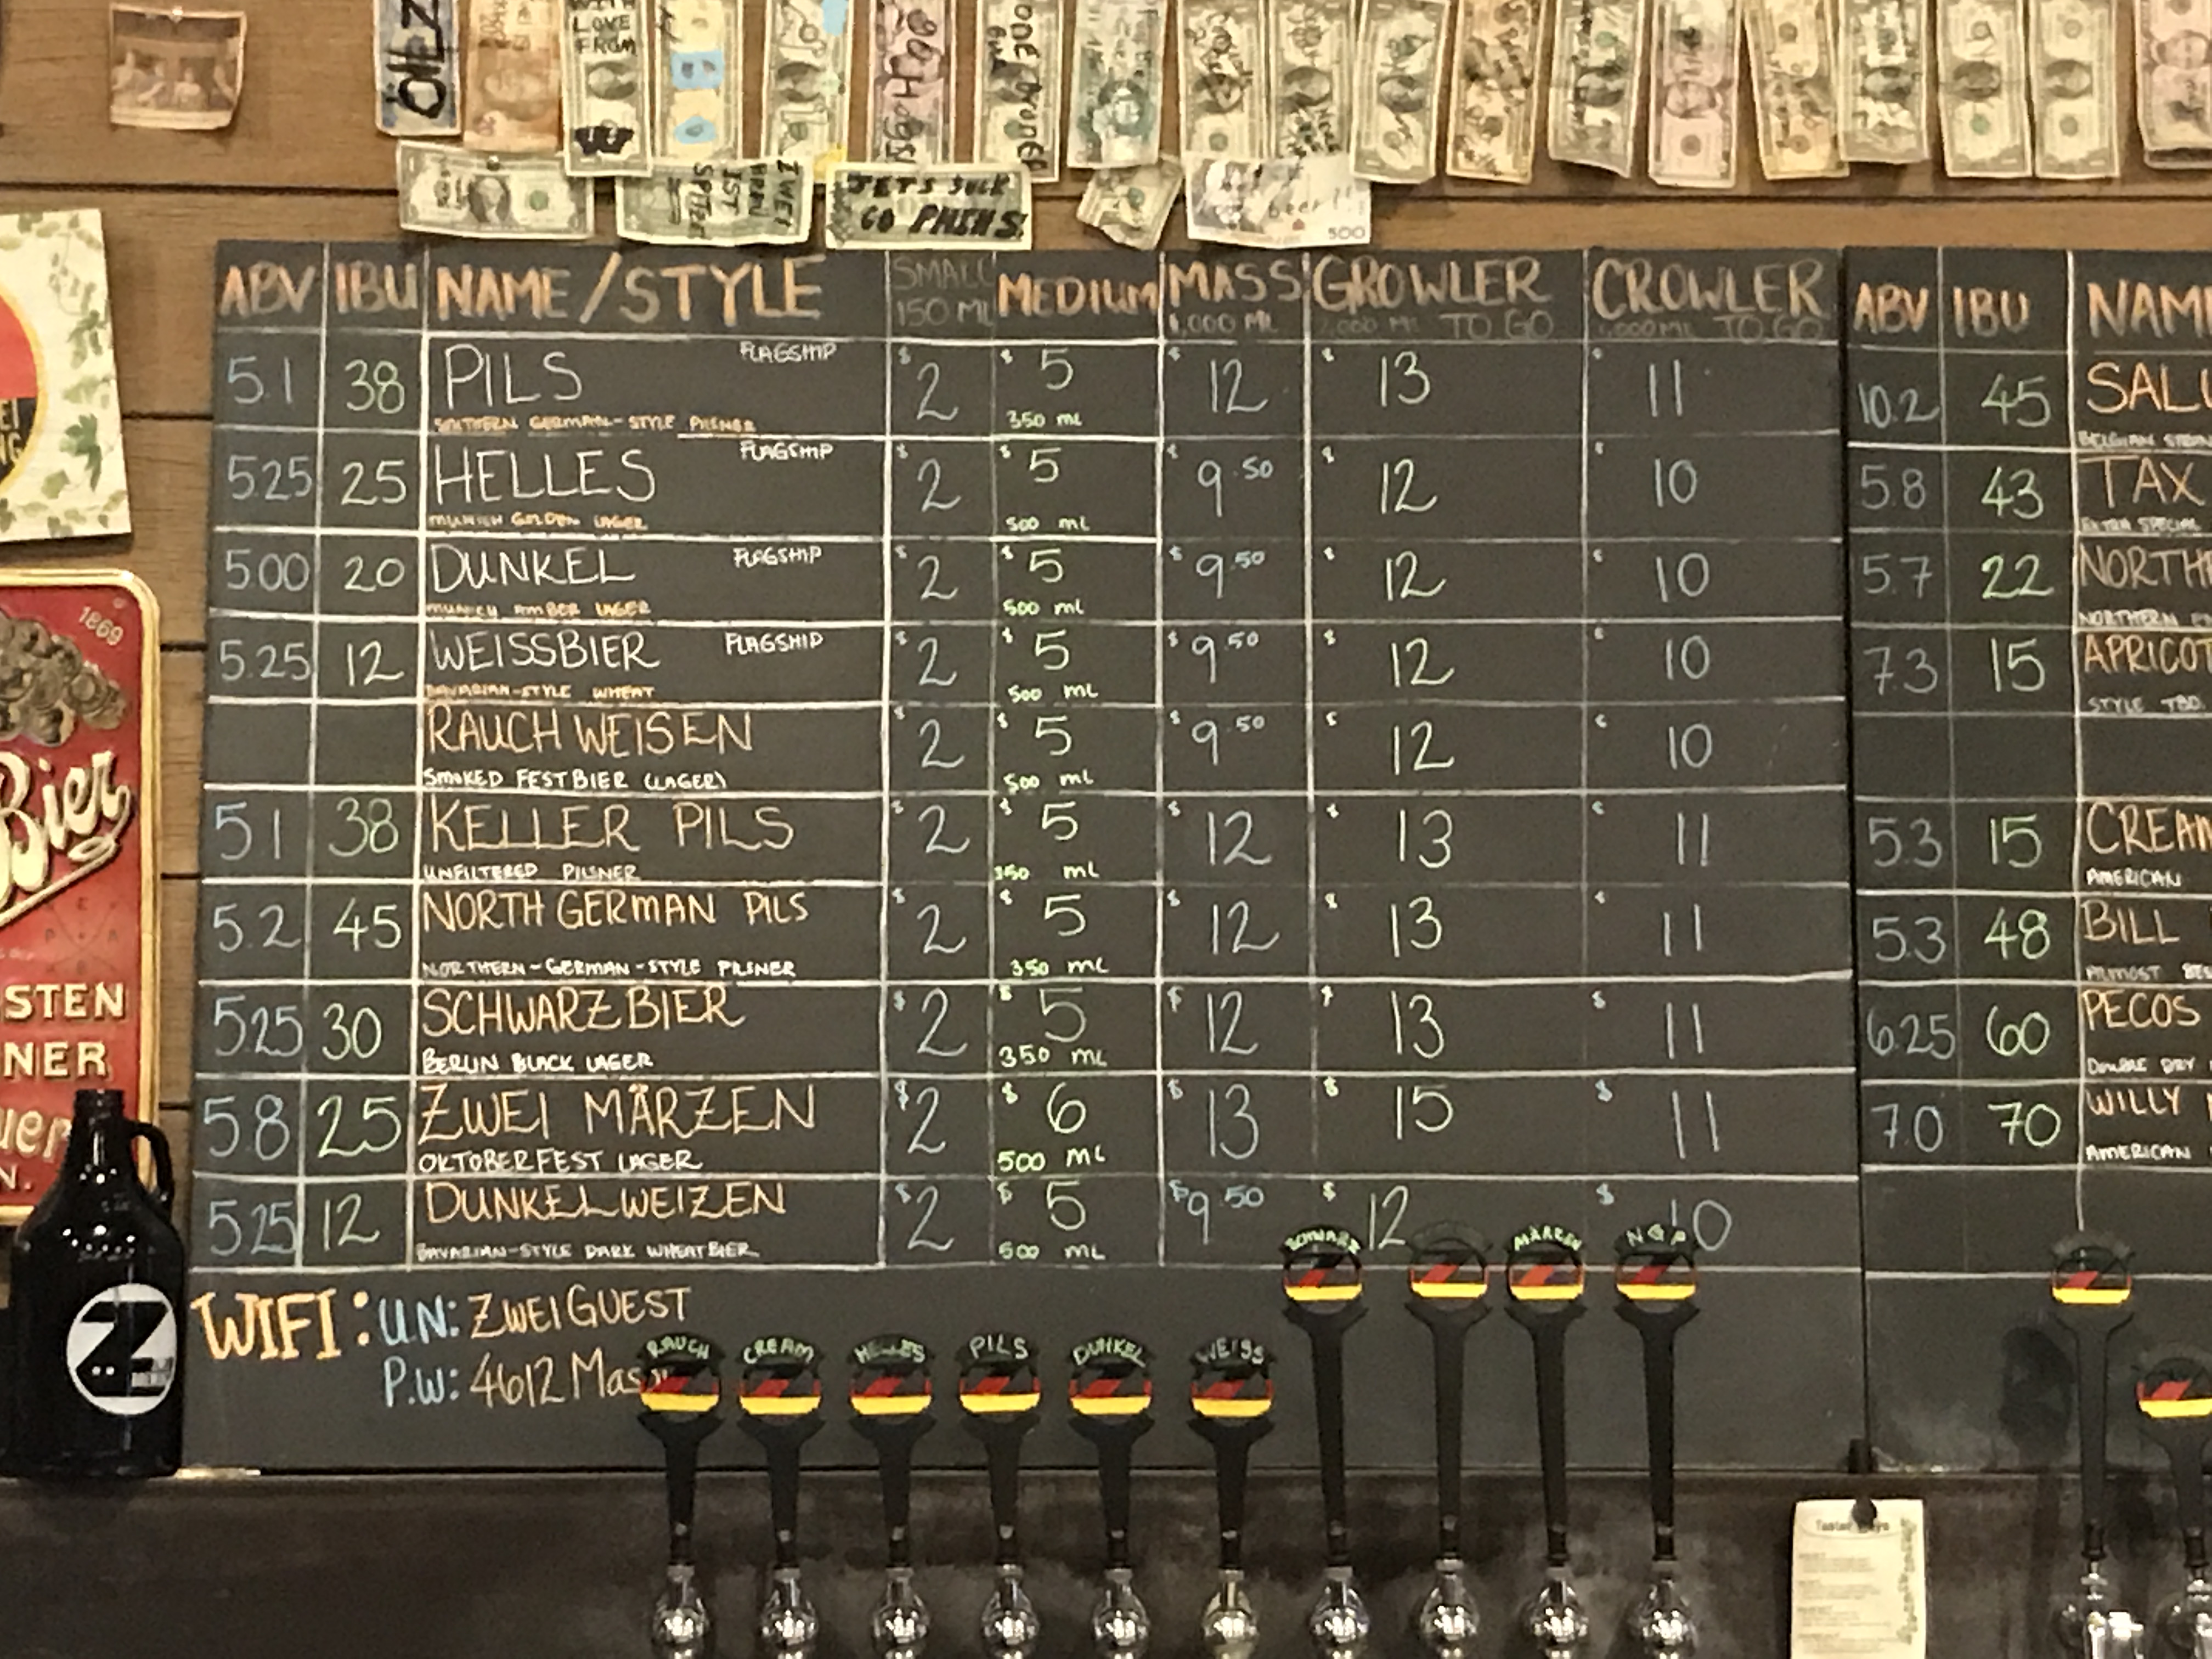 WITH
LOVE
FROM
JETS SUCK
GO PHINS!
500
1869
Bier
STEN
NER
ABV IBU NAME/STYLE SMALL 150 ML MEDIUM MASS 1,000 ML GROWLER TO GO CROWLER TO GO
5.1 38 PILS FLAGSHIP $2 $5 $12 $13 $11
SOUTHERN GERMAN-STYLE PILSNER 350 ML
5.25 25 HELLES FLAGSHIP $2 $5 $9.50 $12 $10
MUNICH GOLDEN LAGER 500 ML
5.00 20 DUNKEL FLAGSHIP $2 $5 $9.50 $12 $10
MUNICH AMBER LAGER 500 ML
5.25 12 WEISSBIER FLAGSHIP $2 $5 $9.50 $12 $10
BAVARIAN-STYLE WHEAT 500 ML
RAUCH WEISEN $2 $5 $9.50 $12 $10
SMOKED FESTBIER (LAGER) 500 ML
5.1 38 KELLER PILS $2 $5 $12 $13 $11
UNFILTERED PILSNER 350 ML
5.2 45 NORTH GERMAN PILS $2 $5 $12 $13 $11
NORTHERN-GERMAN-STYLE PILSNER 350 ML
5.25 30 SCHWARZBIER $2 $5 $12 $13 $11
BERLIN BLACK LAGER 350 ML
5.8 25 ZWEI MÄRZEN $2 $6 $13 $15 $11
OKTOBERFEST LAGER 500 ML
5.25 12 DUNKELWEIZEN $2 $5 $9.50 $12 $10
BAVARIAN-STYLE DARK WHEATBIER 500 ML
WIFI: U.N: ZWEIGUEST
P.W: 4612Mas
ABV IBU NAM
10.2 45 SALU
5.8 43 TAX
EXTRA SPECIAL
5.7 22 NORTH
NORTHERN
7.3 15 APRICOT
STYLE TBD
5.3 15 CREAM
AMERICAN
5.3 48 BILL
ALMOST
6.25 60 PECOS
DOUBLE DRY
7.0 70 WILLY
AMERICAN
SCHWARZ MÄRZEN NGP
RAUCH CREAM HELLES PILS DUNKEL WEISS
Z